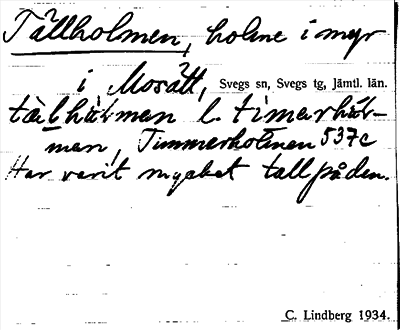 Tällholmen, holme i myr
i Mosätt, Svegs sn, Svegs tg, Jämtl. län.
tàlhúlmen l. timerhúl-
men, Timmerholmen 537c
Har varit mycket tall på den.
C. Lindberg 1934.